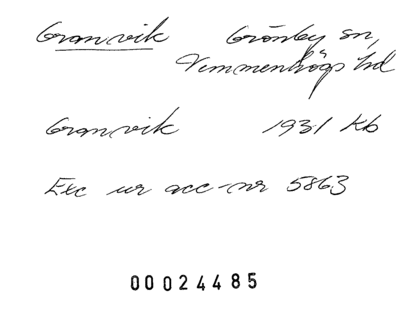 Granvik Grönby sn,
Vemmenhögs hd
Granvik 1931 Kb
Exc ur acc-nr 5863
00024485